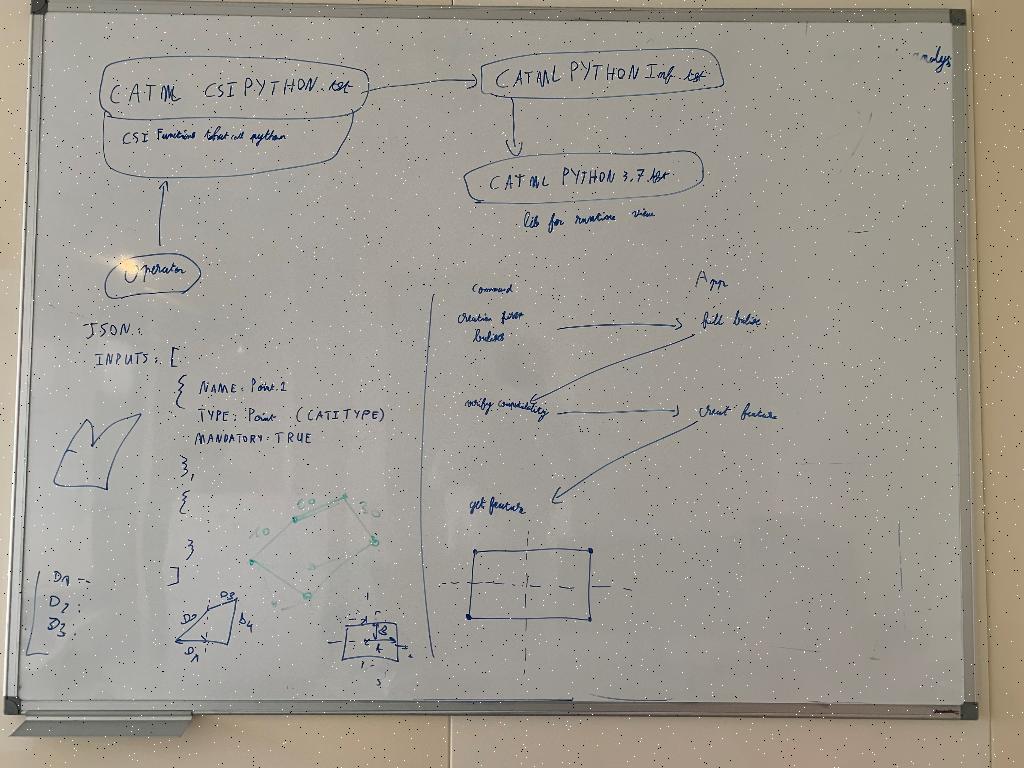 CATML CSI PYTHON.tst
CATML PYTHON Inf.tst
CSI Functions that call python
CATML PYTHON 3.7.tst
lib for runtime view
Operator
Command
App
JSON:
INPUTS: [
{ NAME: Point.1
TYPE: Point (CATITYPE)
MANDATORY: TRUE
},
{
}
]
creation first
fill
verify compatibility
creat feature
get feature
60
30
D1 --
D2 :
D3 :
D2
D3
D4
D1
B
A